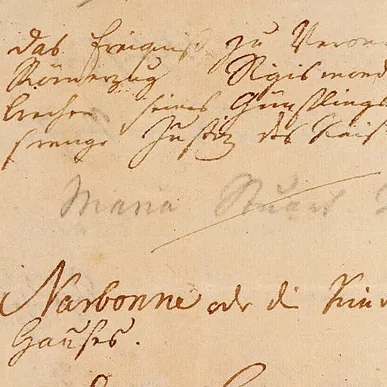 das Ereigniß zu Veron
Römerzug Sigismond
brechen seines Günstlings
strenge Justiz des Kais
Maria Stuart
Narbonne oder die Kin
Hauses.